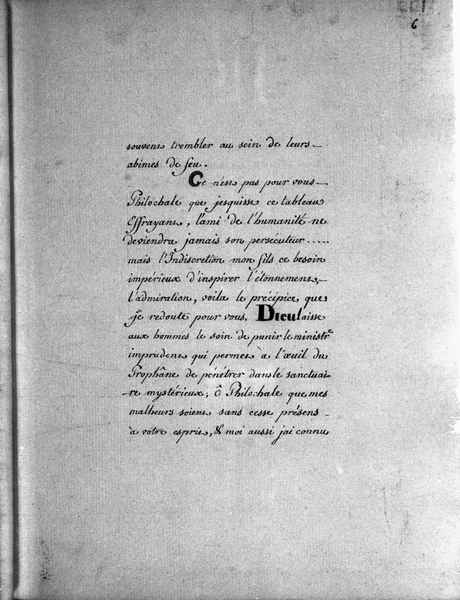 6
souvent trembler au sein de leurs
abimes de feu.
Ce n'est pas pour vous
Philochale que j'esquisse ce tableau
Effrayant, l'ami de l'humanité ne
deviendra jamais son persécuteur.....
mais l'Indiscretion mon fils ce besoin
impérieux d'inspirer l'étonnement,
l'admiration, voila le précipice, que
je redoute pour vous, Dieu laisse
aux hommes le soin de punir le ministre
imprudent qui permet à l'œuil du
Prophâne de pénétrer dans le sanctuai-
re mystérieux; ô Philochale que mes
malheurs soient sans cesse présens
à votre esprit, & moi aussi jai connu